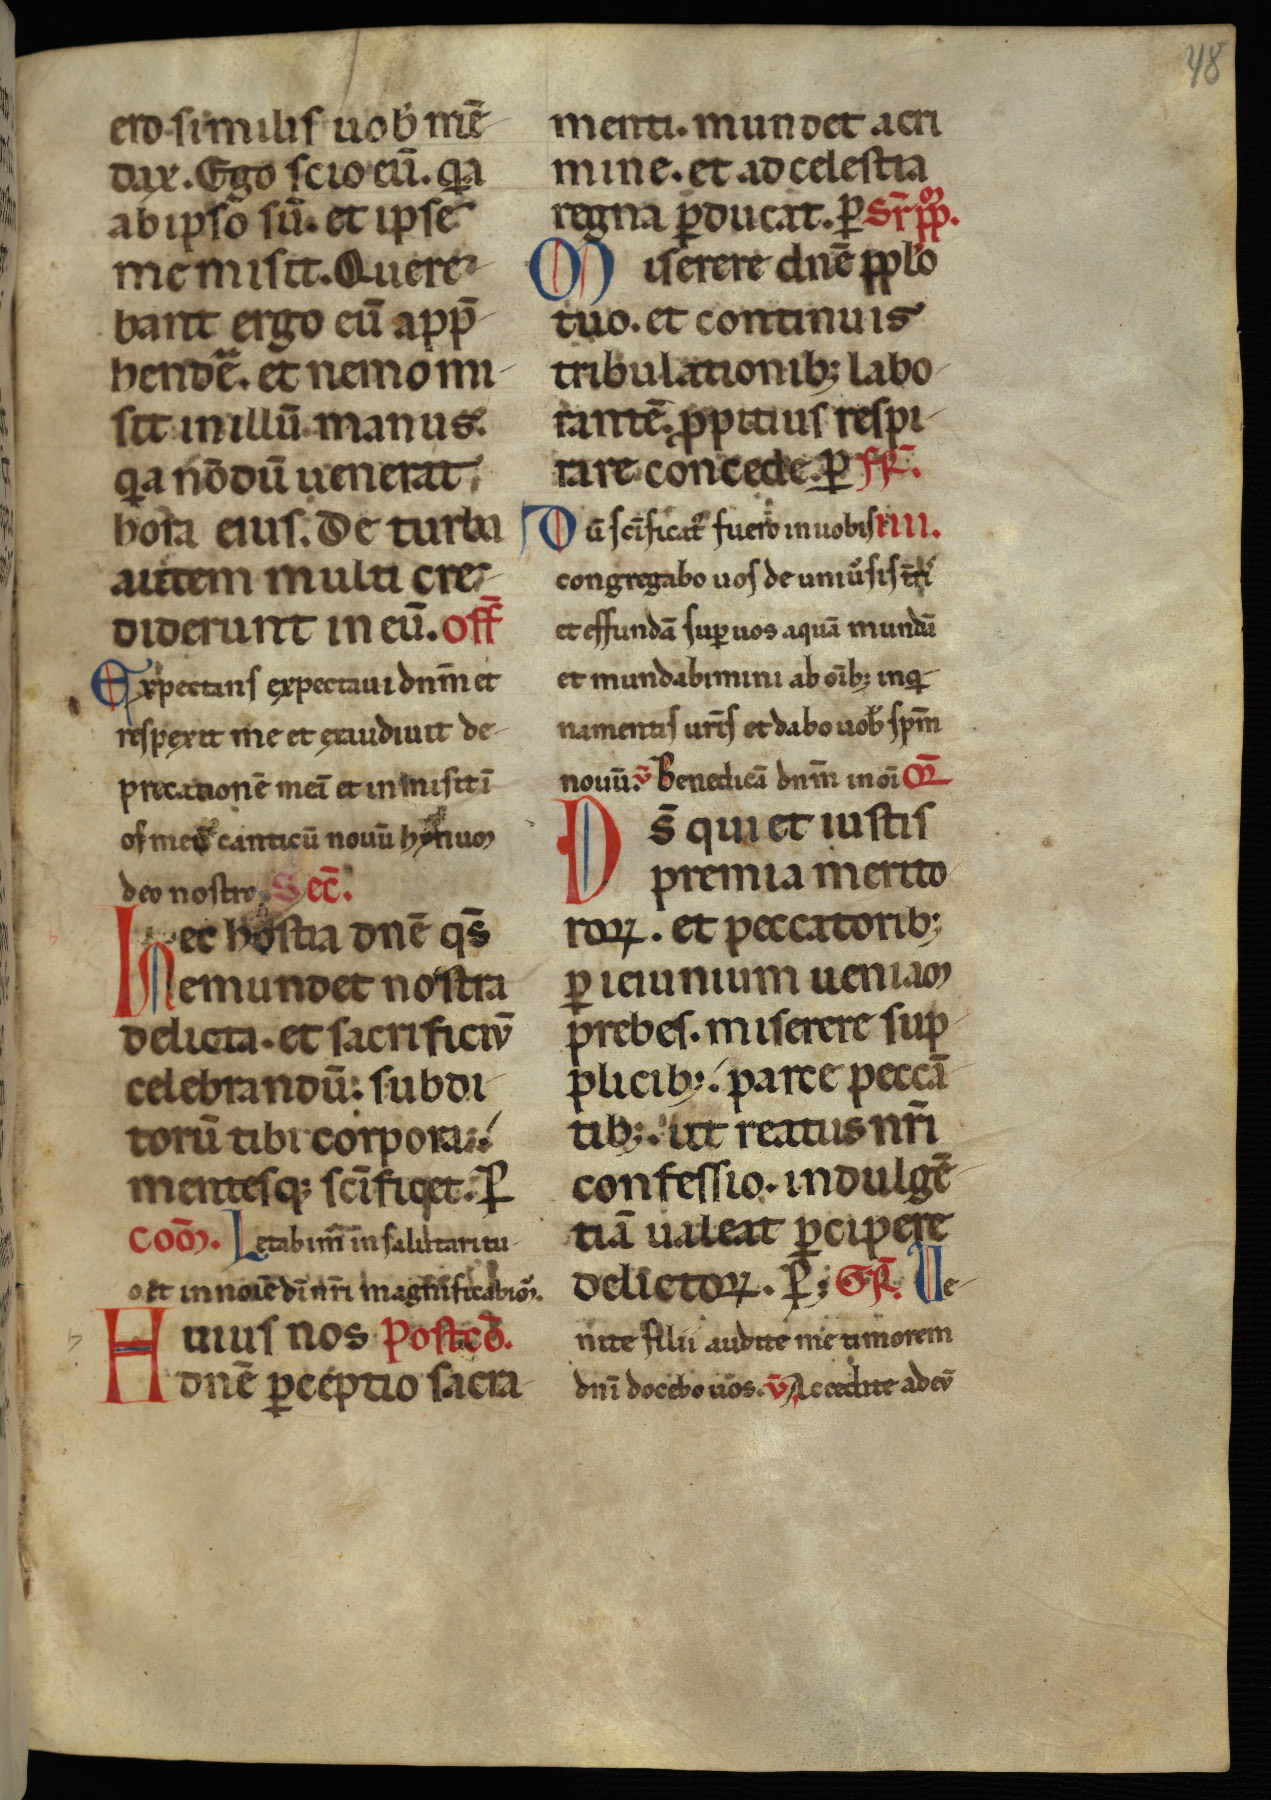 48
ero similis uob̄ mē
dax. Ego scio eū. qa
ab ipso sū. et ipse
me misit. Quere
bant ergo eū app̄
hendē. et nemo mi
sit in illū manus.
qa nōdū uenerat
hora eius. De turba
autem multi cre
diderunt in eū. off̄
Expectans expectaui dn̄m et
respexit me et exaudiuit de
precationē meā et inmisit ī
os meū canticū nouū hymnum
deo nostro. Sec̄.
Hec hostia dnē qs̄
emundet nostra
delicta. et sacrificiū
celebrandū: subdi
torū tibi corpora:
mentesq; scīficet. P̄
Coōm. Letabim̄ in salutari tu
o et in noīe dī nr̄i magnificabim̄.
Huius nos Postcō.
dnē ꝑceptio sacra
menti. mundet a cri
mine. et ad celestia
regna ꝑducat. ꝑ Sr̄ pp̄m.
Miserere dnē pplo
tuo. et continuis
tribulationib; labo
rantē. ꝓpitius respi
rare concede. ꝑ fr̄.
Dū scīficat᷒ fuero in uobis IIII.
congregabo uos de uniūsis tr̄i
et effundā suꝑ uos aquā mundā
et mundabimini ab oīb; inq̄
namentis ur̄is et dabo uob̄ sp̄m
nouū. v̄ Benedicā dn̄m in oī Or̄
Ds̄ qui et iustis
premia merito
roꝝ. et peccatorib;
ꝑ ieiunium ueniam
prebes. miserere sup
plicib;. parce peccā
tib;. ut reatus nr̄i
confessio. indulgē
tiā ualeat ꝑcipere
delictoꝝ. P̄; Gr̄. Ve
nite filii audite me timorem
dn̄i docebo uos. v̄ Accedite ad eū